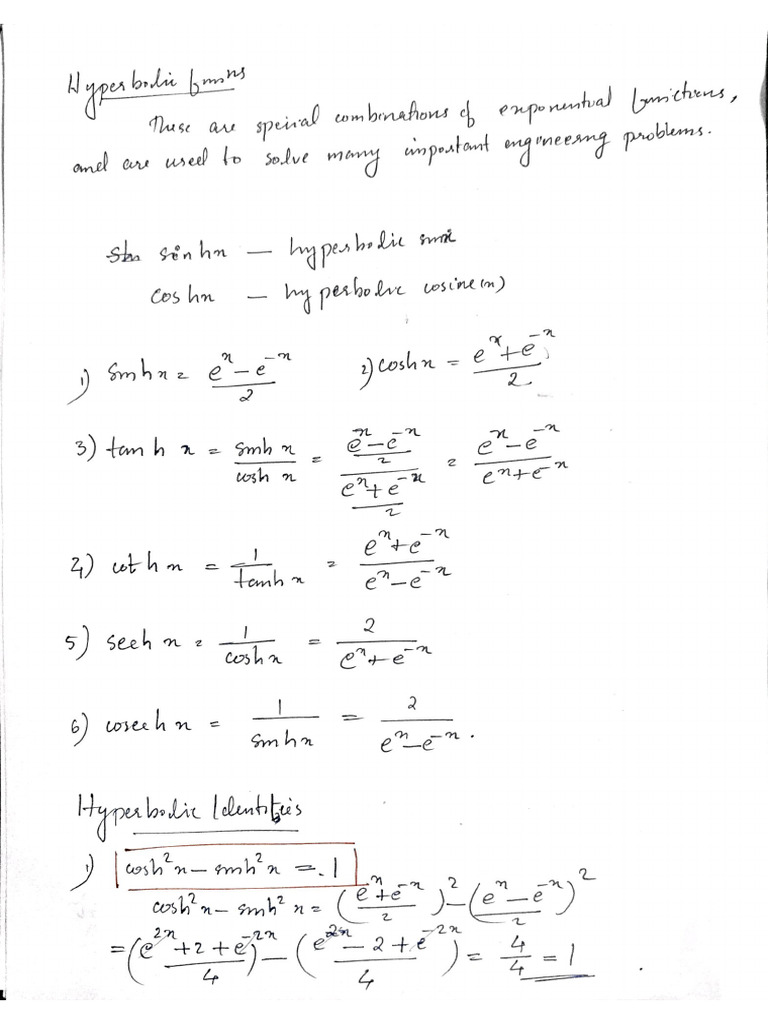 Hyperbolic funns
These are speical combinations of exponential functions,
and are used to solve many important engineering problems.
sinhx — hyperbolic sine
coshx — hyperbolic cosine(x)
1) sinhx = (e^x − e^−x)/2    2) coshx = (e^x + e^−x)/2
3) tanh x = sinh x/cosh x = ((e^x − e^−x)/2)/((e^x + e^−x)/2) = (e^x − e^−x)/(e^x + e^−x)
4) coth x = 1/tanhx = (e^x + e^−x)/(e^x − e^−x)
5) sech x = 1/coshx = 2/(e^x + e^−x)
6) cosech x = 1/sinhx = 2/(e^x − e^−x).
Hyperbolic Identities
1) cosh²x − sinh²x = 1
cosh²x − sinh²x = ((e^x + e^−x)/2)² − ((e^x − e^−x)/2)²
= ((e^2x + 2 + e^−2x)/4) − ((e^2x − 2 + e^−2x)/4) = 4/4 = 1